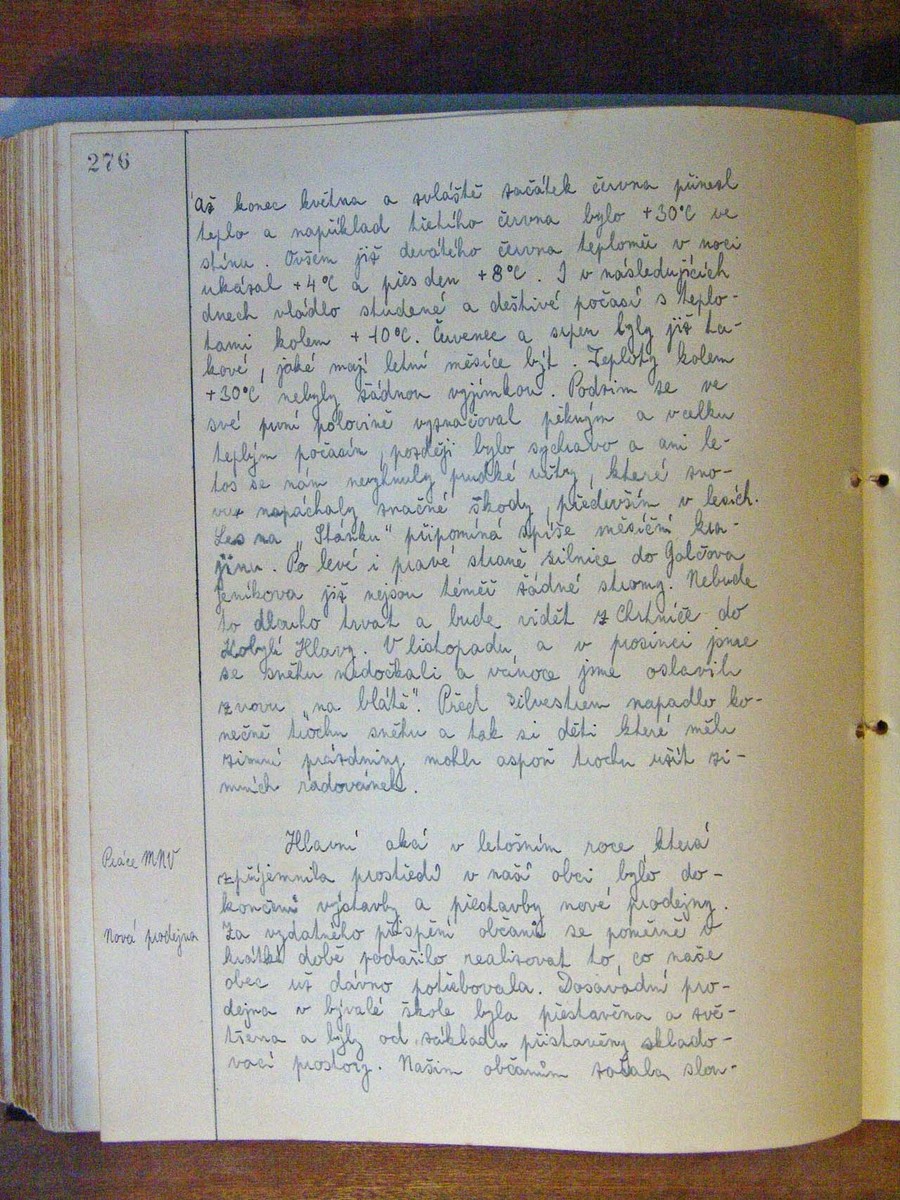 276
Až konec května a zvláště začátek června přinesl
teplo a například třetího června bylo +30°C ve
stínu. Ovšem již devátého června teploměr v noci
ukázal +4°C a přes den +8°C. I v následujících
dnech vládlo studené a deštivé počasí s teplo-
tami kolem +10°C. Červenec a srpen byly již ta-
kové, jaké mají letní měsíce být. Teploty kolem
+30°C nebyly žádnou vyjímkou. Podzim se ve
své první polovině vyznačoval pěkným a vcelku
teplým počasím, později bylo sychravo a ani le-
tos se nám nevyhnuly prudké větry, které zno-
vu napáchaly značné škody, především v lesích.
Les na "Stánku" připomíná spíše měsíční kra-
jinu. Po levé i pravé straně silnice do Golčova
Jeníkova již nejsou téměř žádné stromy. Nebude
to dlouho trvat a bude vidět z Chrtníče do
Kobylí Hlavy. V listopadu a v prosinci jsme
se sněhu nedočkali a vánoce jsme oslavili
znovu "na blátě". Před silvestrem napadlo ko-
nečně trochu sněhu a tak si děti které měli
zimní prázdniny mohli aspoň trochu užít zi-
mních radovánek.
Práce MNV
Hlavní akcí v letošním roce která
zpříjemnila prostředí v naší obci bylo do-
končení výstavby a přestavby nové prodejny.
Nová prodejna
Za vydatného přispění občanů se poměrně v
krátké době podařilo realizovat to, co naše
obec už dávno potřebovala. Dosavadní pro-
dejna v bývalé škole byla přestavěna a zvě-
tšena a byly od základu přistavěny sklado-
vací prostory. Našim občanům začala slou-